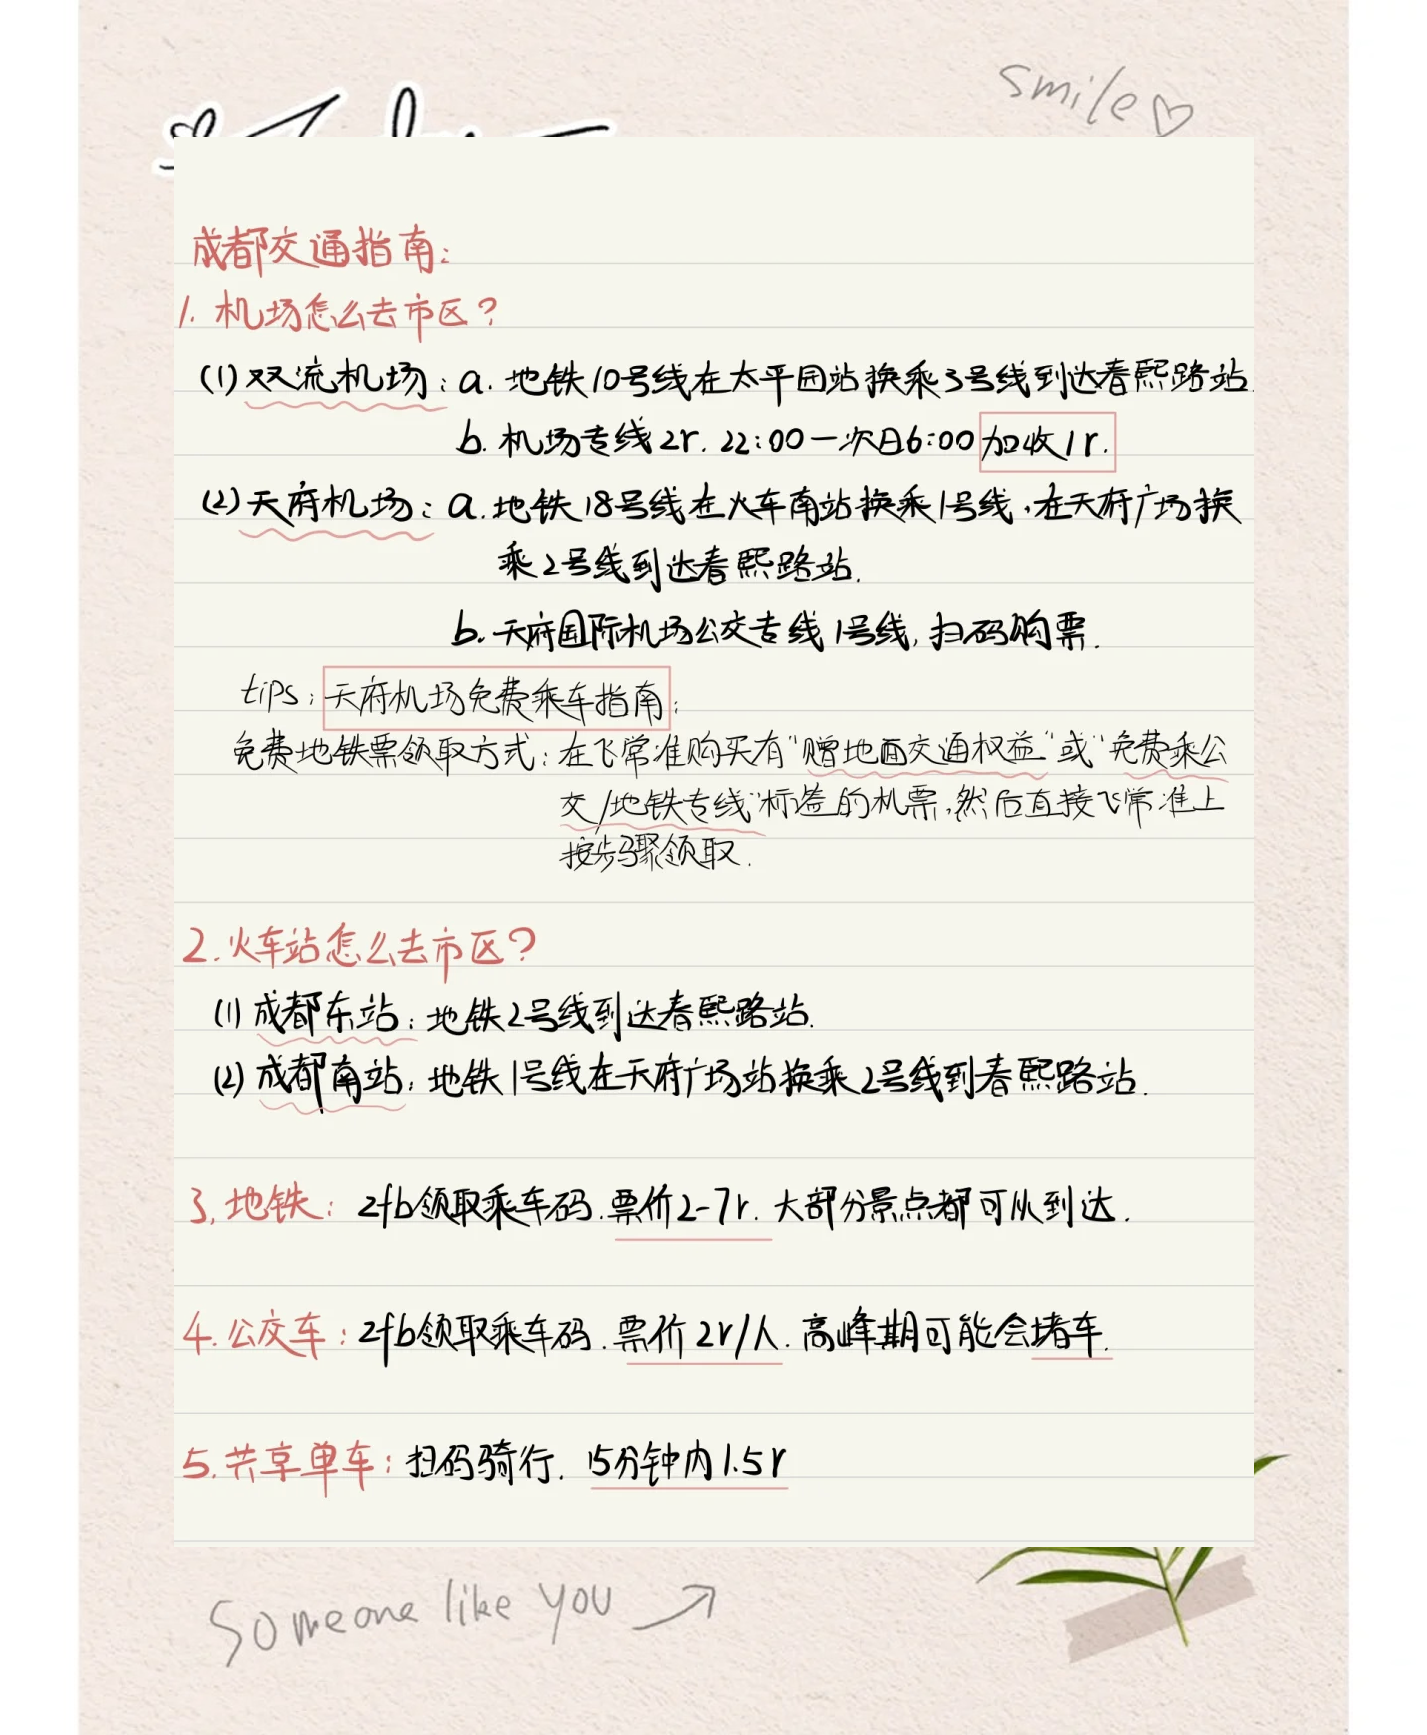 smile
成都交通指南:
1. 机场怎么去市区?
(1) 双流机场: a. 地铁10号线在太平园站换乘3号线到达春熙路站.
b. 机场专线2r. 22:00一次日6:00加收1r.
(2) 天府机场: a. 地铁18号线在火车南站换乘1号线,在天府广场换
乘2号线到达春熙路站.
b. 天府国际机场公交专线1号线,扫码购票.
tips: 天府机场免费乘车指南:
免费地铁票领取方式: 在飞常准购买有"赠地面交通权益"或"免费乘公
交/地铁专线"标签的机票,然后直接飞常准上
按步骤领取.
2. 火车站怎么去市区?
(1) 成都东站: 地铁2号线到达春熙路站.
(2) 成都南站: 地铁1号线在天府广场站换乘2号线到春熙路站.
3. 地铁: zfb领取乘车码.票价2-7r. 大部分景点都可以到达.
4. 公交车: zfb领取乘车码.票价2r/人.高峰期可能会堵车.
5. 共享单车: 扫码骑行. 15分钟内1.5r
Someone like you